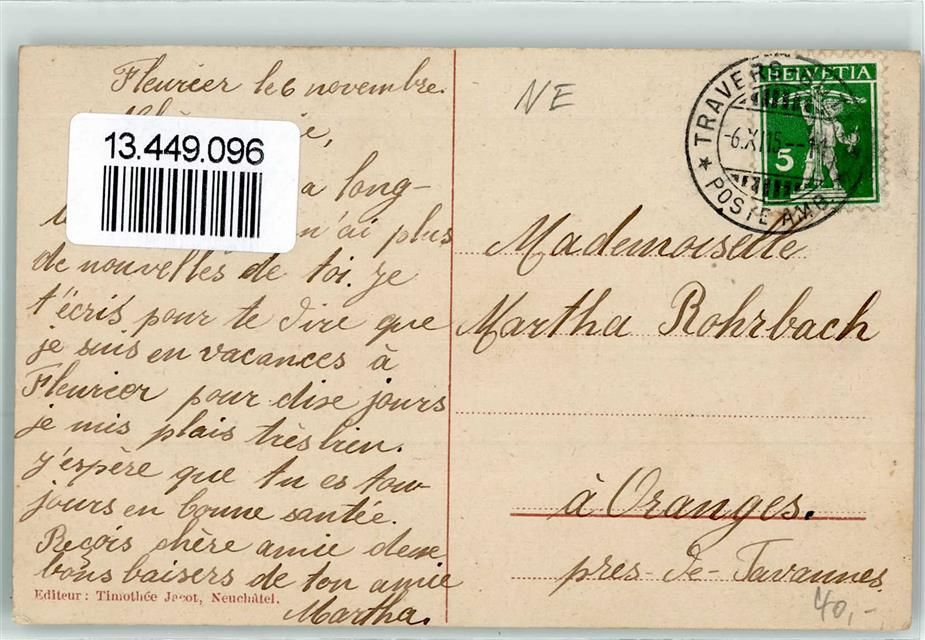 Fleurier le 6 novembre.
13.449.096
a long-
n'ai plus
de nouvelles de toi. Je
t'écris pour te dire que
je suis en vacances à
Fleurier pour dixe jours
je mis plais très bien.
J'espère que tu es tou-
jours en bonne santée.
Reçois chère amie deux
bons baisers de ton amie
Martha.
Editeur: Timothée Jacot, Neuchâtel.
NE
HELVETIA
5
TRAVERS
-6.XI.15.--
POSTE AMB.
Mademoiselle
Martha Rohrbach
à Oranges.
pres-de-Tavannes
40,-